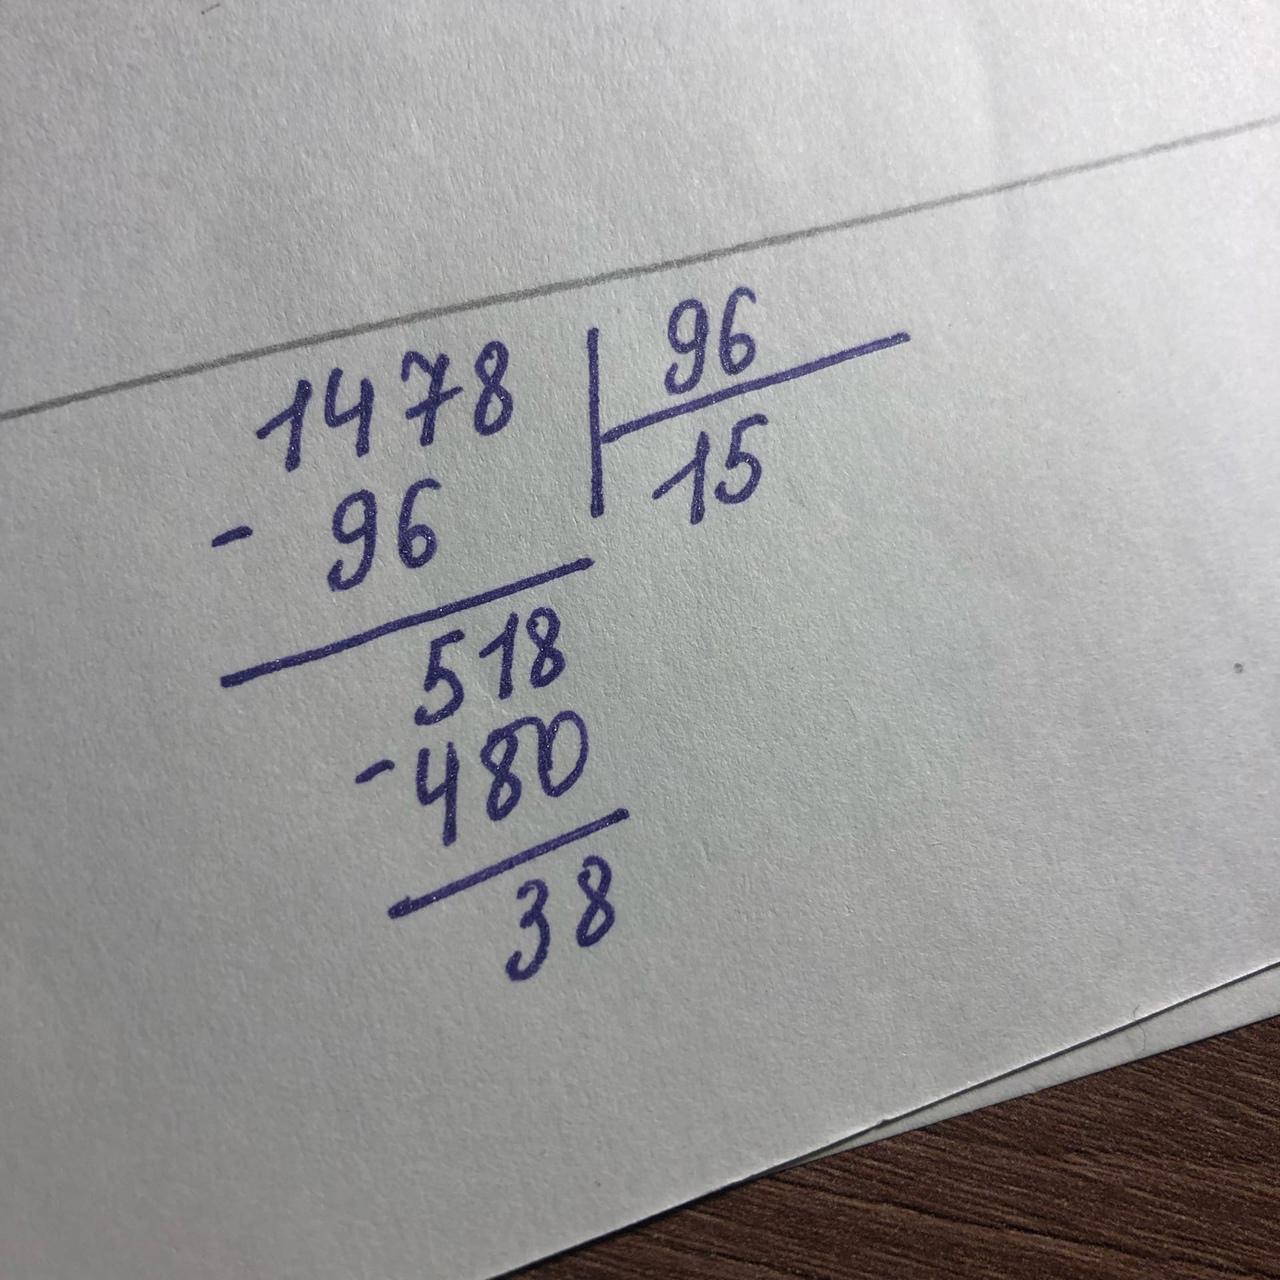 1478 | 96
- 96 15
518
-480
38